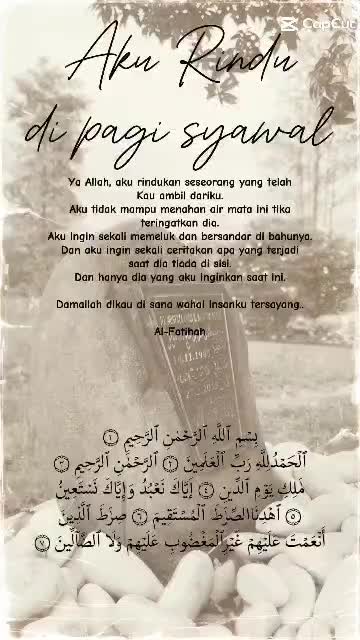 CapCut
Aku Rindu
di pagi syawal
Ya Allah, aku rindukan seseorang yang telah
Kau ambil dariku.
Aku tidak mampu menahan air mata ini tika
teringatkan dia.
Aku ingin sekali memeluk dan bersandar di bahunya.
Dan aku ingin sekali ceritakan apa yang terjadi
saat dia tiada di sisi.
Dan hanya dia yang aku inginkan saat ini.
Damailah dikau di sana wahai insanku tersayang..
Al-Fatihah.
بِسْمِ اللَّهِ الرَّحْمَٰنِ الرَّحِيمِ ۝١
الْحَمْدُ لِلَّهِ رَبِّ الْعَالَمِينَ ۝٢ الرَّحْمَٰنِ الرَّحِيمِ ۝٣
مَٰلِكِ يَوْمِ الدِّينِ ۝٤ إِيَّاكَ نَعْبُدُ وَإِيَّاكَ نَسْتَعِينُ
۝٥ اهْدِنَا الصِّرَٰطَ الْمُسْتَقِيمَ ۝٦ صِرَٰطَ الَّذِينَ
أَنْعَمْتَ عَلَيْهِمْ غَيْرِ الْمَغْضُوبِ عَلَيْهِمْ وَلَا الضَّالِّينَ ۝٧